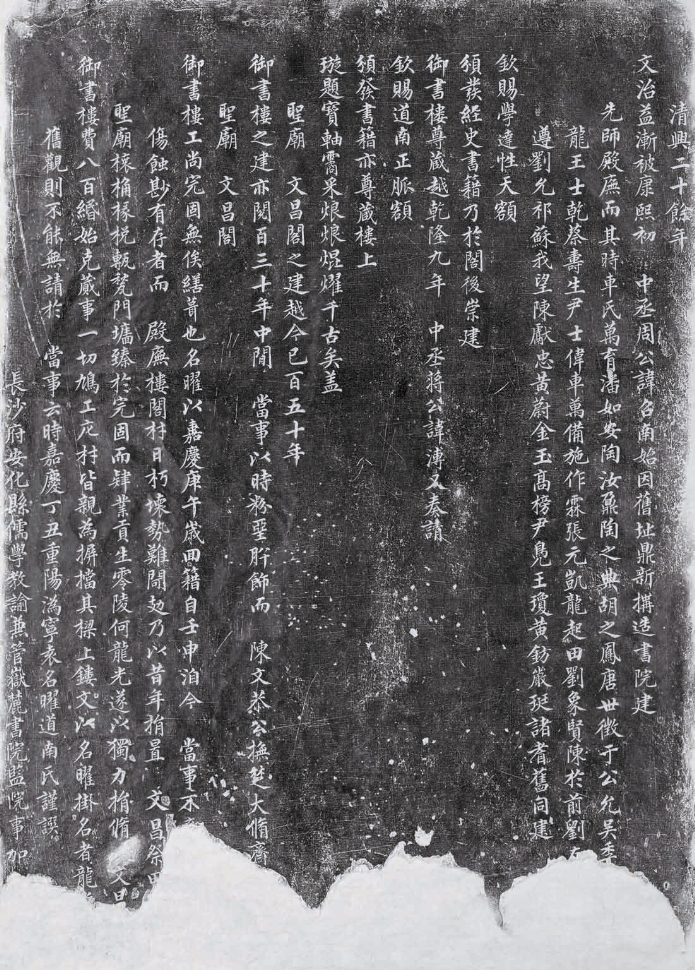 清興二十餘年
文治益漸被康熙初 中丞周公諱召南始因舊址鼎新搆造書院建
先師殿廡而其時車氏萬育潘如安陶汝鼐陶之典胡之鳳唐世徵于公允吳季
龍王士乾蔡壽生尹士偉車萬備施作霖張元凱龍起田劉象賢陳於前劉
遵劉允祁蘇我望陳獻忠黃蔚金玉高榜尹鳧王瓊黃鈁嚴珽諸耆舊同建
欽賜學達性天額
頒發經史書籍乃於閣後崇建
御書樓尊藏越乾隆九年 中丞蔣公諱溥又奏請
欽賜道南正脈額
頒發書籍亦尊藏樓上
璇題寶軸霱采烺烺焜燿千古矣蓋
聖廟 文昌閣之建越今已百五十年
御書樓之建亦閱百三十年中間 當事以時粉堊肝飾而 陳文恭公撫楚大脩齋
聖廟 文昌閣
御書樓工尚完固無俟繕葺也名曜以嘉慶庚午歲回籍自壬申洎今 當事不
傷蝕尠有存者而 殿廡樓閣材日朽壞勢難閣攰乃以昔年捐置 文昌祭田
聖廟榱桷椽梲甎甃門墻臻於完固而肄業貢生零陵何龍光遂以獨力捐脩 文昌
御書樓費八百緡始克蕆事一切鳩工庀材皆親為摒擋其樑上鏤文以名曜掛名者龍
舊觀則不能無請於 當事云時嘉慶丁丑重陽溈寧袁名曜道南氏謹譔
長沙府安化縣儒學教諭兼管嶽麓書院監院事加